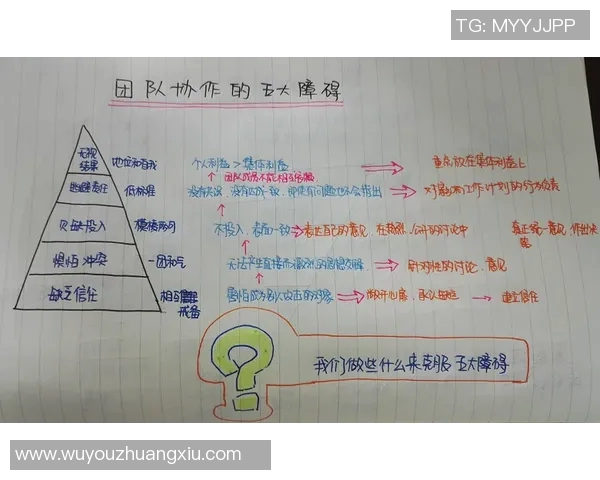 TG: MYYJJPP
团队协作的五大障碍
无视结果 地位和自我 个人利益 > 集体利益 重点放在集体利益上
团队成员不能相互
逃避责任 低标准 没有共识、没有达成一致、即使有问题也不会指出 对影响工作计划的行为负责
欠缺投入 模棱两可 不投入、表面一致 表达自己的意见、在热烈、公开的讨论中 真正统一意见、作出决策
惧怕冲突 一团和气 无法产生直接而激烈的思想交锋 针对性的讨论、意见
缺乏信任 相互戒备 害怕成为别人攻击的对象 敞开心扉、承认缺点 建立信任
我们做些什么来克服五大障碍
www.wuyouzhuangxiu.com